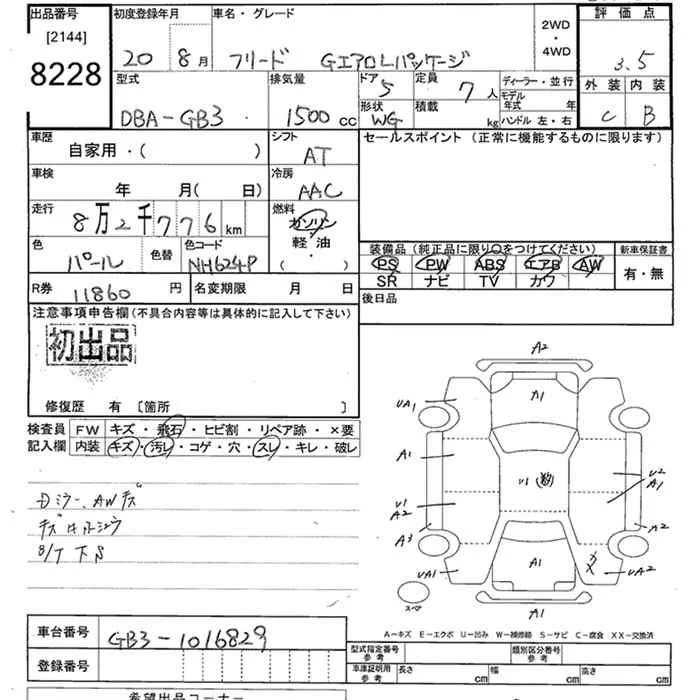 出品番号 初度登録年月 車名・グレード 2WD・4WD 評価点
[2144]
8228
20 8月 フリード GエアロLパッケージ 3.5
型式 排気量 ドア 5 定員 7人 ディーラー・並行 外装 内装
DBA-GB3 1500cc 形状 WG 積載 kg モデル年式 年 ハンドル 左・右 C B
車歴 シフト セールスポイント (正常に機能するものに限ります)
自家用・( ) AT
車検 冷房
年 月( 日) AAC
走行 8万2千776km 燃料
ガソリン
軽・油
・
( )
色 パール 色替 色コード NH624P
装備品(純正品に限り○をつけてください) 新車保証書
PS PW ABS エアB AW 有・無
SR ナビ TV カワ
R券 11860円 名変期限 月 日 後日品
注意事項申告欄(不具合内容等は具体的に記入して下さい)
初出品
修復歴 有 〔箇所 〕
検査員 FW キズ・飛石・ヒビ割・リペア跡・×要
記入欄 内装 キズ・汚レ・コゲ・穴・スレ・キレ・破レ
Dミラー、AWキズ
B/T下S
A2
A1
UA1
A1
U1
U2
A1
U1
A2
A3
A2
A1
UA1
UA2
A1
スペア
A-キズ E-エクボ U-凹み W-補修跡 S-サビ C-腐食 XX-交換済
車台番号 GB3-1016829
登録番号
型式指定番号 参考 類別区分番号 参考
車庫証明用 参考 長さ cm 幅 cm 高さ cm
希望出品コーナー